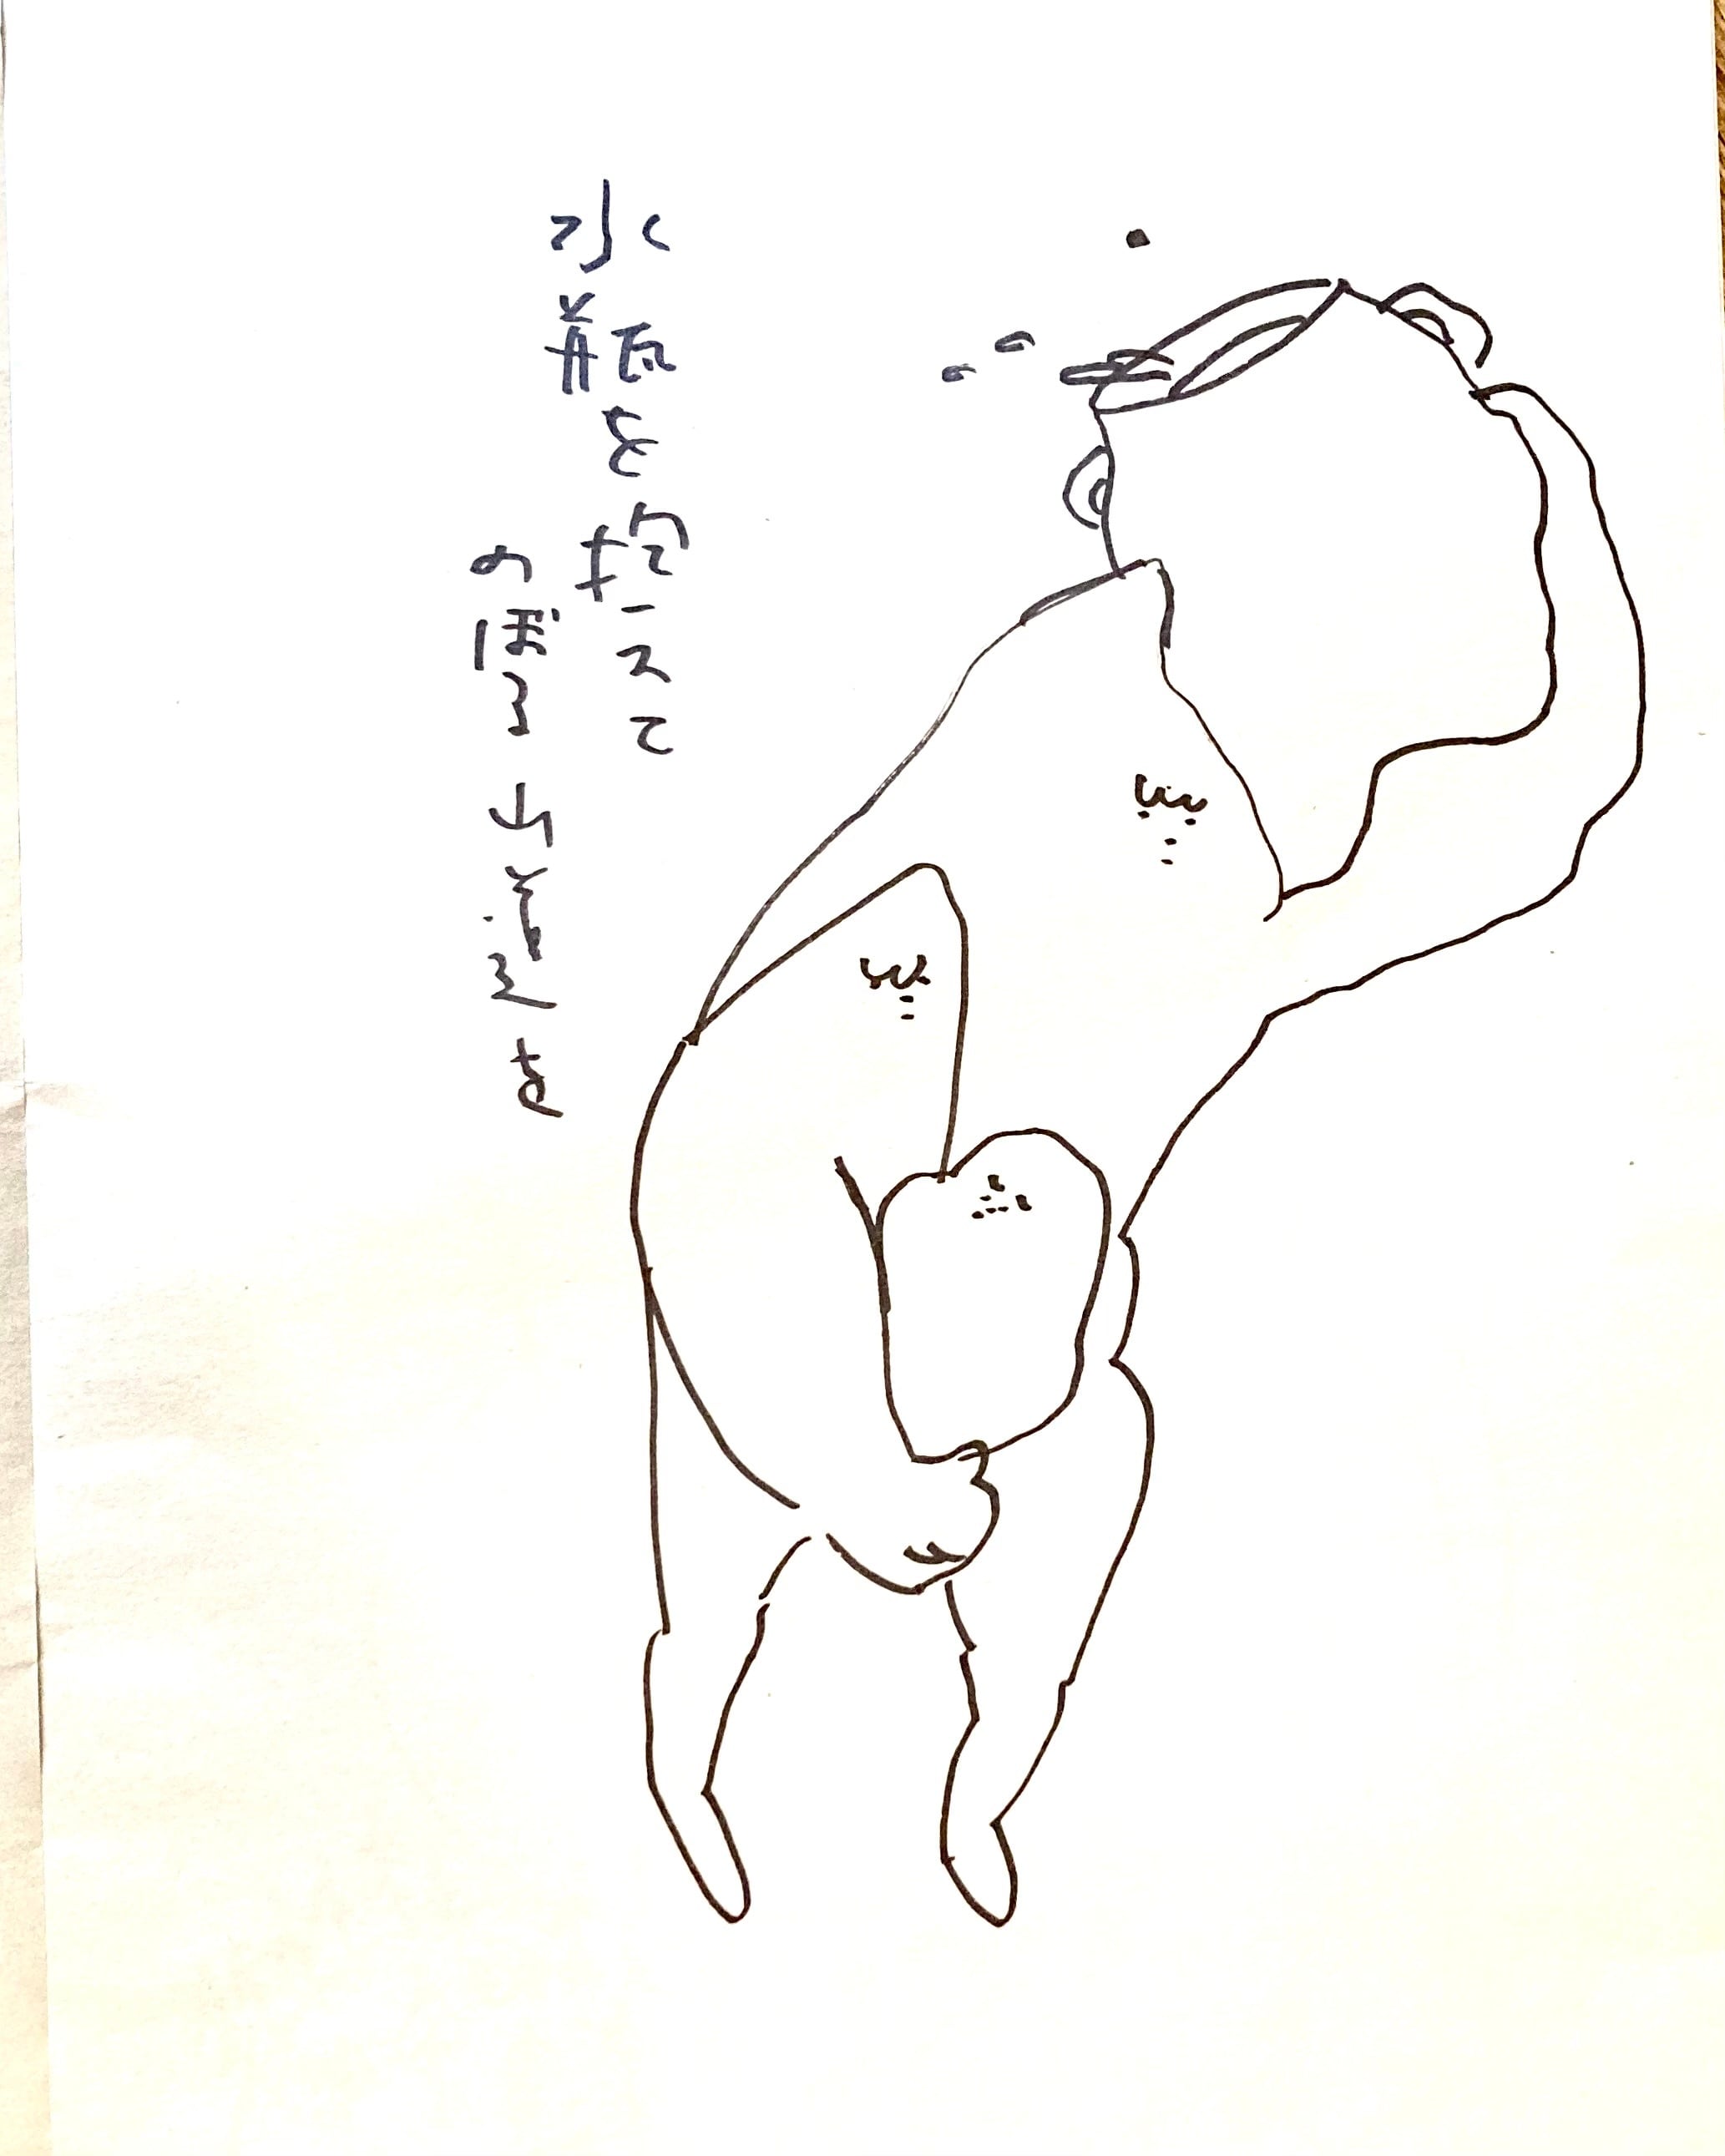 水瓶を抱えて
のぼる山道を